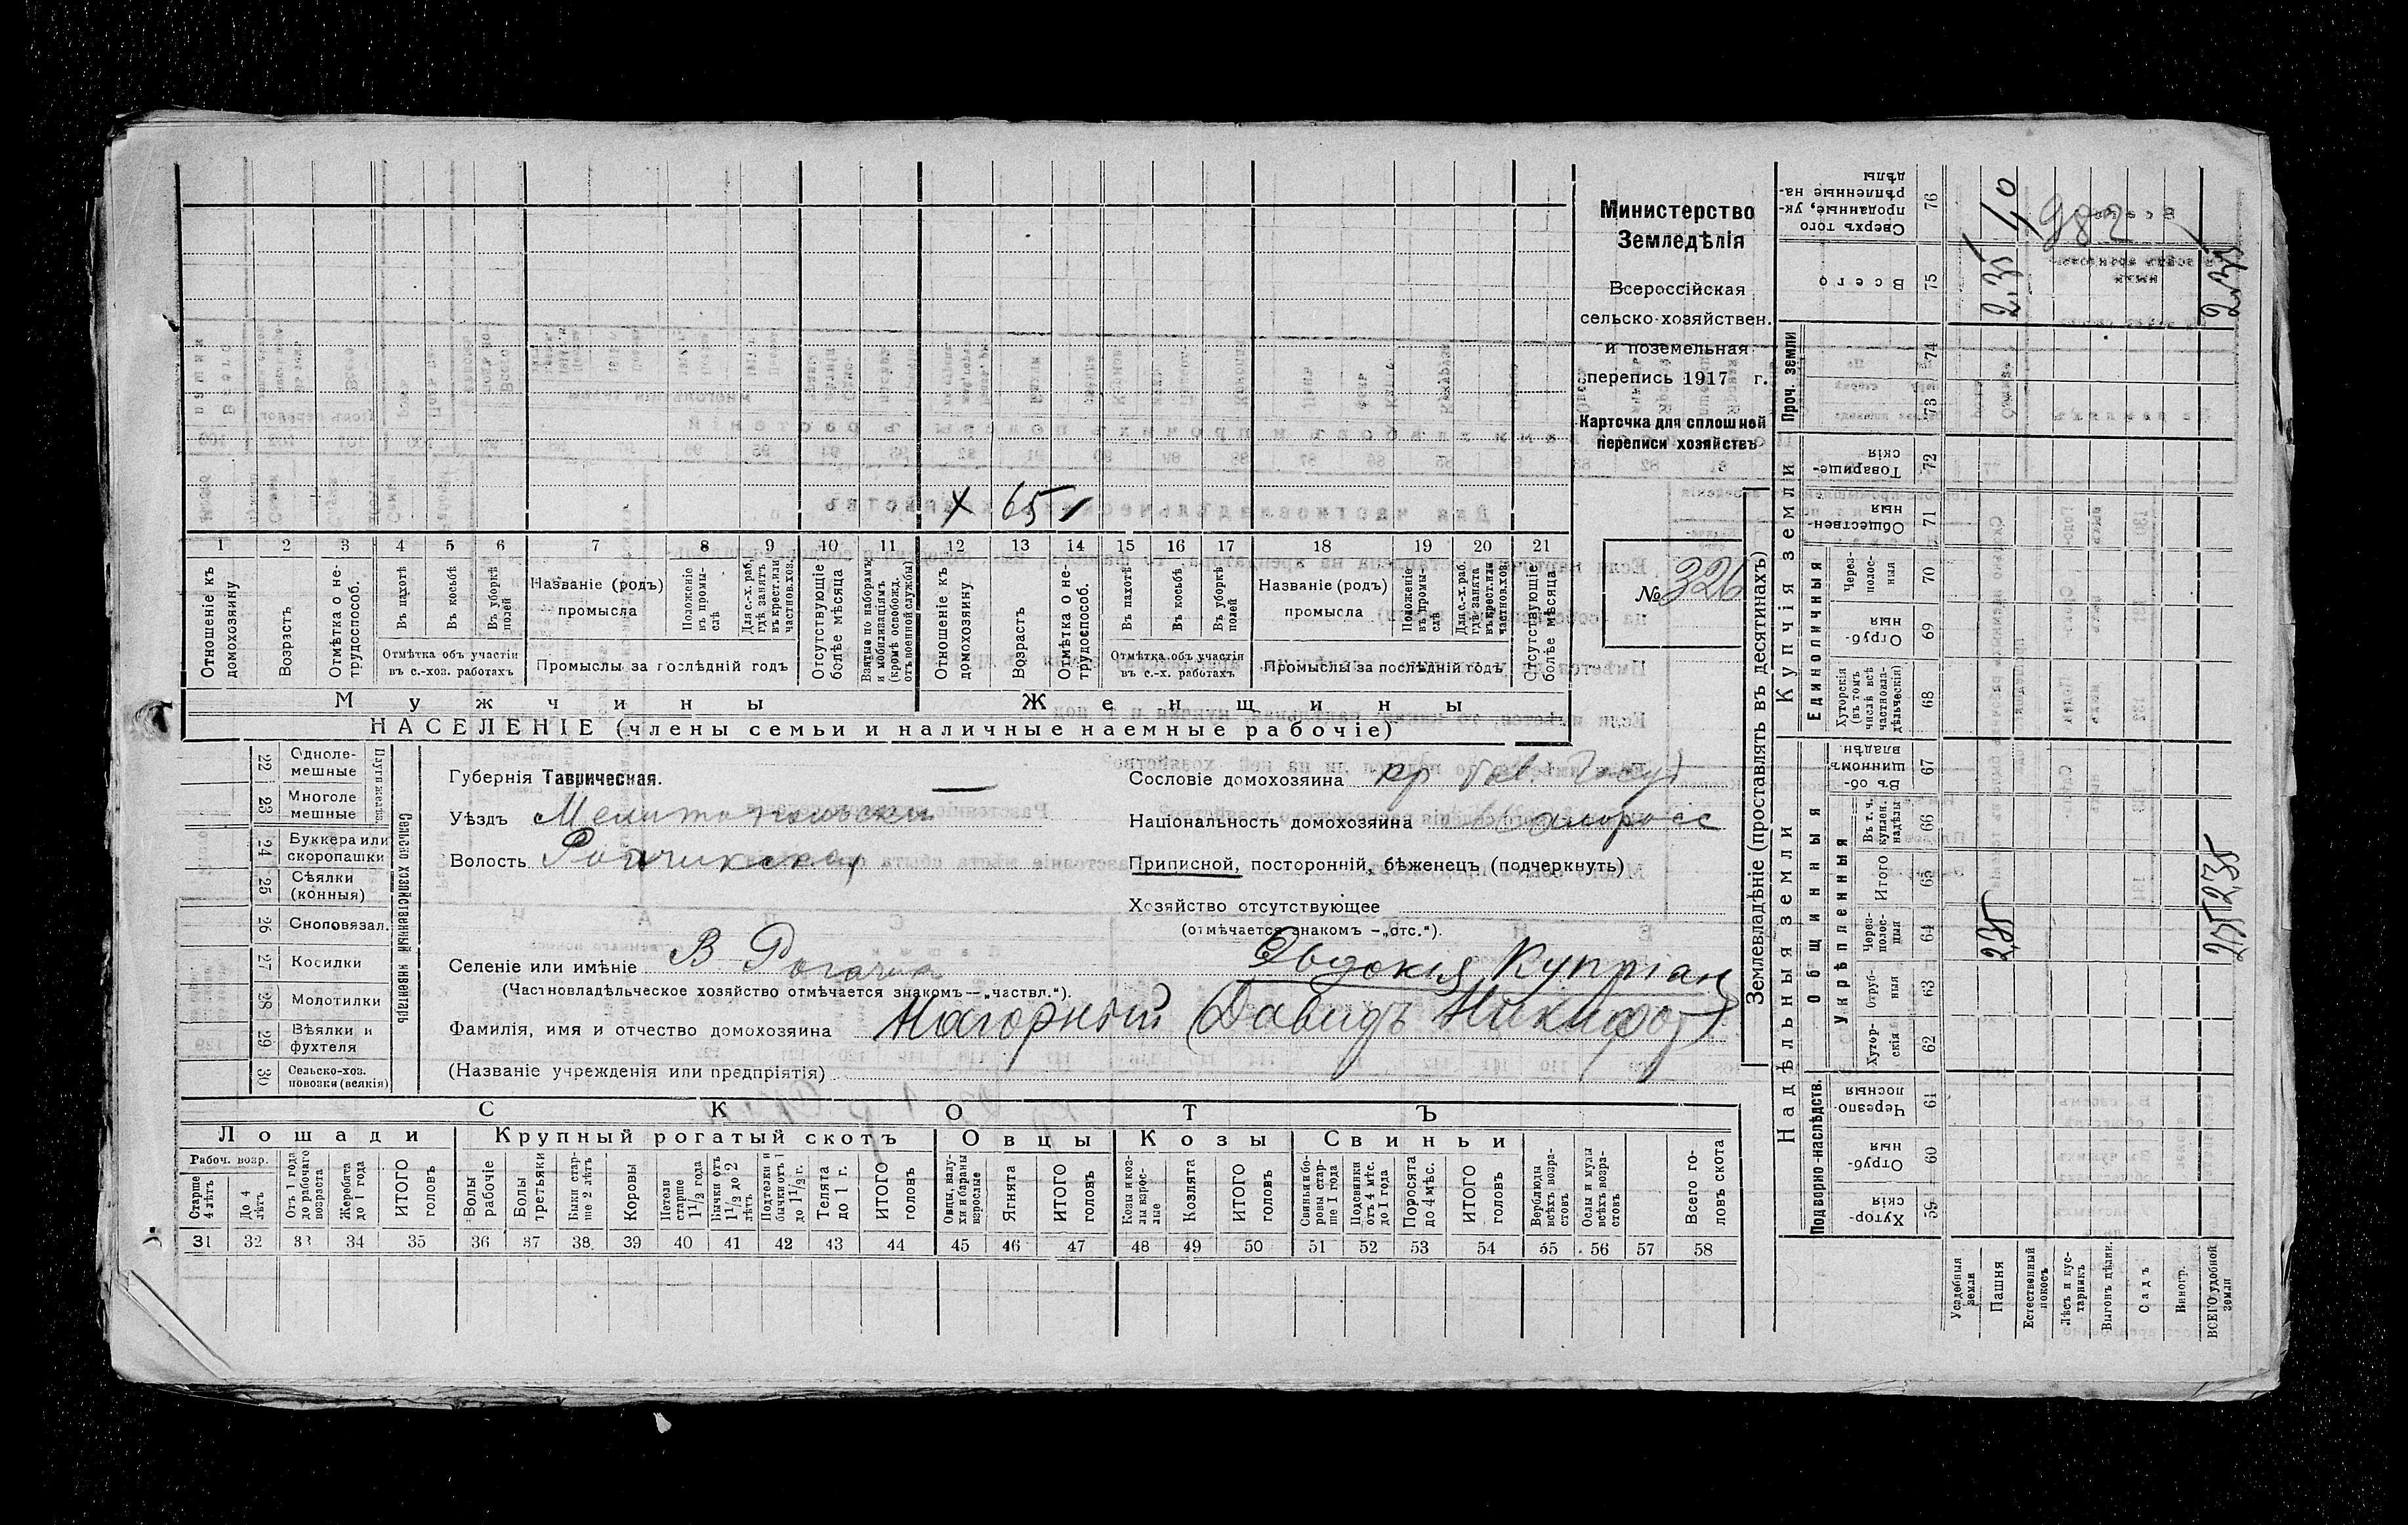 Министерство
Земледѣлія
Всероссійская
сельско-хозяйствен.
и поземельная
перепись 1917 г.
Карточка для сплошной
переписи хозяйствъ
№ 326
х 65
1 2 3 4 5 6 7 8 9 10 11 12 13 14 15 16 17 18 19 20 21
Отношеніе къ домохозяину
Возрастъ
Отмѣтка о не-трудоспособ.
Въ пахотѣ
Въ косьбѣ
Въ уборкѣ полей
Отмѣтка объ участіи въ с.-хоз. работахъ
Названіе (родъ) промысла
Положеніе въ промы-слѣ
Для с.-х. раб. гдѣ занятъ въ крест. или частнов. хоз.
Промыслы за послѣдній годъ
Отсутствующіе болѣе мѣсяца
Взятые по наборамъ и мобилизаціямъ (кромѣ освобожд. отъ военной службы)
Отношеніе къ домохозяину
Возрастъ
Отмѣтка о не-трудоспособ.
Въ пахотѣ
Въ косьбѣ
Въ уборкѣ полей
Отмѣтка объ участія въ с.-х. работахъ
Названіе (родъ) промысла
Положеніе въ промы-слѣ
Для с.-х. раб. гдѣ занята въ крест. или частнов. хоз.
Промыслы за послѣдній годъ
Отсутствующіе болѣе мѣсяца
Мужчины
Женщины
НАСЕЛЕНІЕ (члены семьи и наличные наемные рабочіе)
22 Одноле-мешные
23 Многоле мешные
Плуги желѣз.
24 Буккера или скоропашки
25 Сѣялки (конныя)
26 Сноповязал.
27 Косилки
28 Молотилки
29 Вѣялки и фухтеля
30 Сельско-хоз. повозки (всякія)
Сельско хозяйственный инвентарь
Губернія Таврическая.
Уѣздъ Мелитопольскій
Волость Рогачикская
Селеніе или имѣніе В Рогачик
(Частновладѣльческое хозяйство отмѣчается знакомъ—„частвл.“).
Сословіе домохозяина кр
Національность домохозяина Малоросс
Приписной, посторонній, бѣженецъ (подчеркнуть)
Хозяйство отсутствующее
(отмѣчается знакомъ —„отс.“).
Евдокія Купріан
Фамилія, имя и отчество домохозяина Нагорный (Давидъ Никифор)
(Названіе учрежденія или предпріятія)
СКОТЪ
Лошади Крупный рогатый скотъ Овцы Козы Свиньи
Рабоч. возр.
Старше 4 лѣтъ
До 4 лѣтъ
Отъ 1 года до рабочаго возраста
Жеребята до 1 года
ИТОГО головъ
Волы рабочіе
Волы третьяки
Быки стар-ше 2 лѣтъ
Коровы
Нетели старше 1½ года
Бычки отъ 1½ до 2 лѣтъ
Подтелки и бычки отъ 1 до 1½ г.
Телята до 1 г.
ИТОГО головъ
Овцы, валу-хи и бараны взрослые
Ягнята
ИТОГО головъ
Козы и коз-лы взрос-лые
Козлята
ИТОГО головъ
Свиньи и бо-ровы стар-ше 1 года
Подсвинки отъ 4 мѣс. до 1 года
Поросята до 4 мѣс.
ИТОГО головъ
Верблюды всѣхъ возра-стовъ
Ослы и мулы всѣхъ возра-стовъ
Всего го-ловъ скота
31 32 33 34 35 36 37 38 39 40 41 42 43 44 45 46 47 48 49 50 51 52 53 54 55 56 57 58
Землевладѣніе (проставлять въ десятинахъ)
Надѣльныя земли
Купчія земли
Проч. земли
Подворно-наслѣдств.
Общинныя
Укрѣпленныя
Единоличныя
Хутор-скія 59
Отруб-ныя 60
Черезпо-лосныя 61
Хутор-скія 62
Отруб-ныя 63
Через-полос-ныя 64
Итого 65
Въ т. ч. куплен. надѣлы 66
Въ об-щинномъ владѣн. 67
Хуторскія (въ томъ числѣ всѣ частновла-дѣльческія) 68
Отруб-ныя 69
Через-полос-ныя 70
Обществен-ныя 71
Товарище-скія 72
73
74
Всего 75
Сверхъ того проданные, ук-рѣпленные на-дѣлы 76
Усадебныя земли
Пашня 2,35 2,35
Естественный покосъ
Лѣсъ и кус-тарникъ
Выгонъ дѣлян.
Садъ
Виногр.
ВСЕГО удобной земли 2,35 2,35 2,35
982